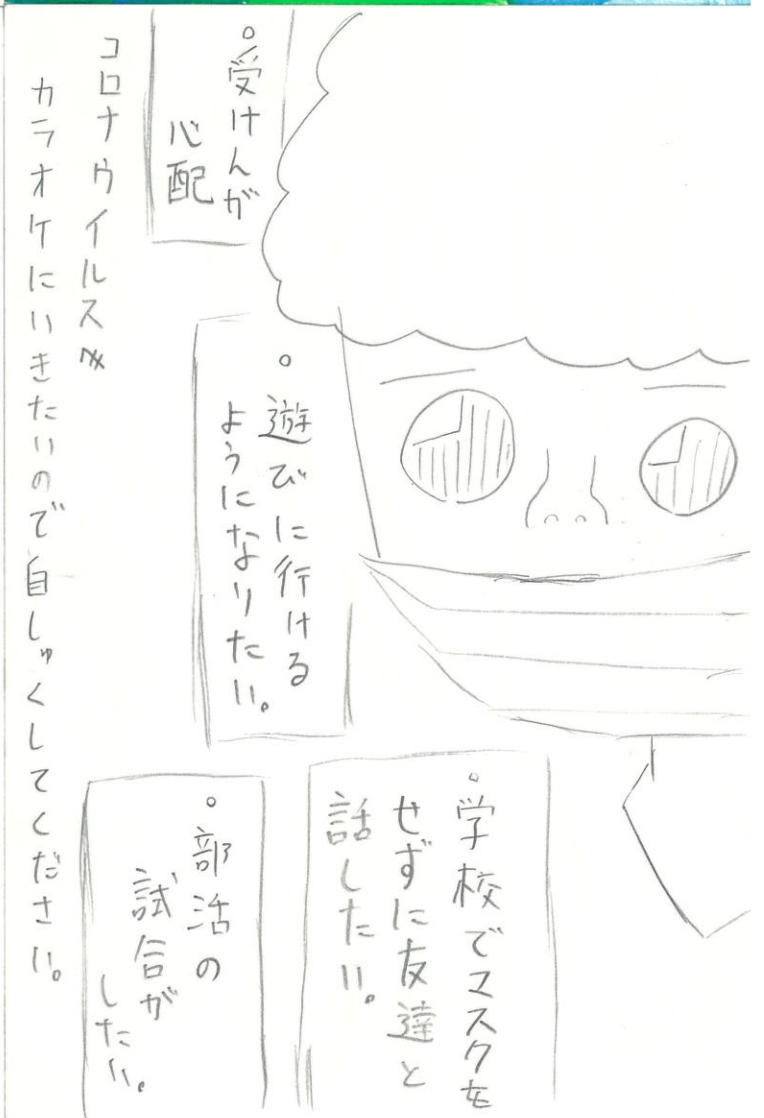 。学校でマスクを
せずに友達と
話したい。
。遊びに行ける
ようになりたい。
。受けんが
心配
。部活の
試合が
したい。
コロナウイルス
カラオケにいきたいので自しゅくしてください。